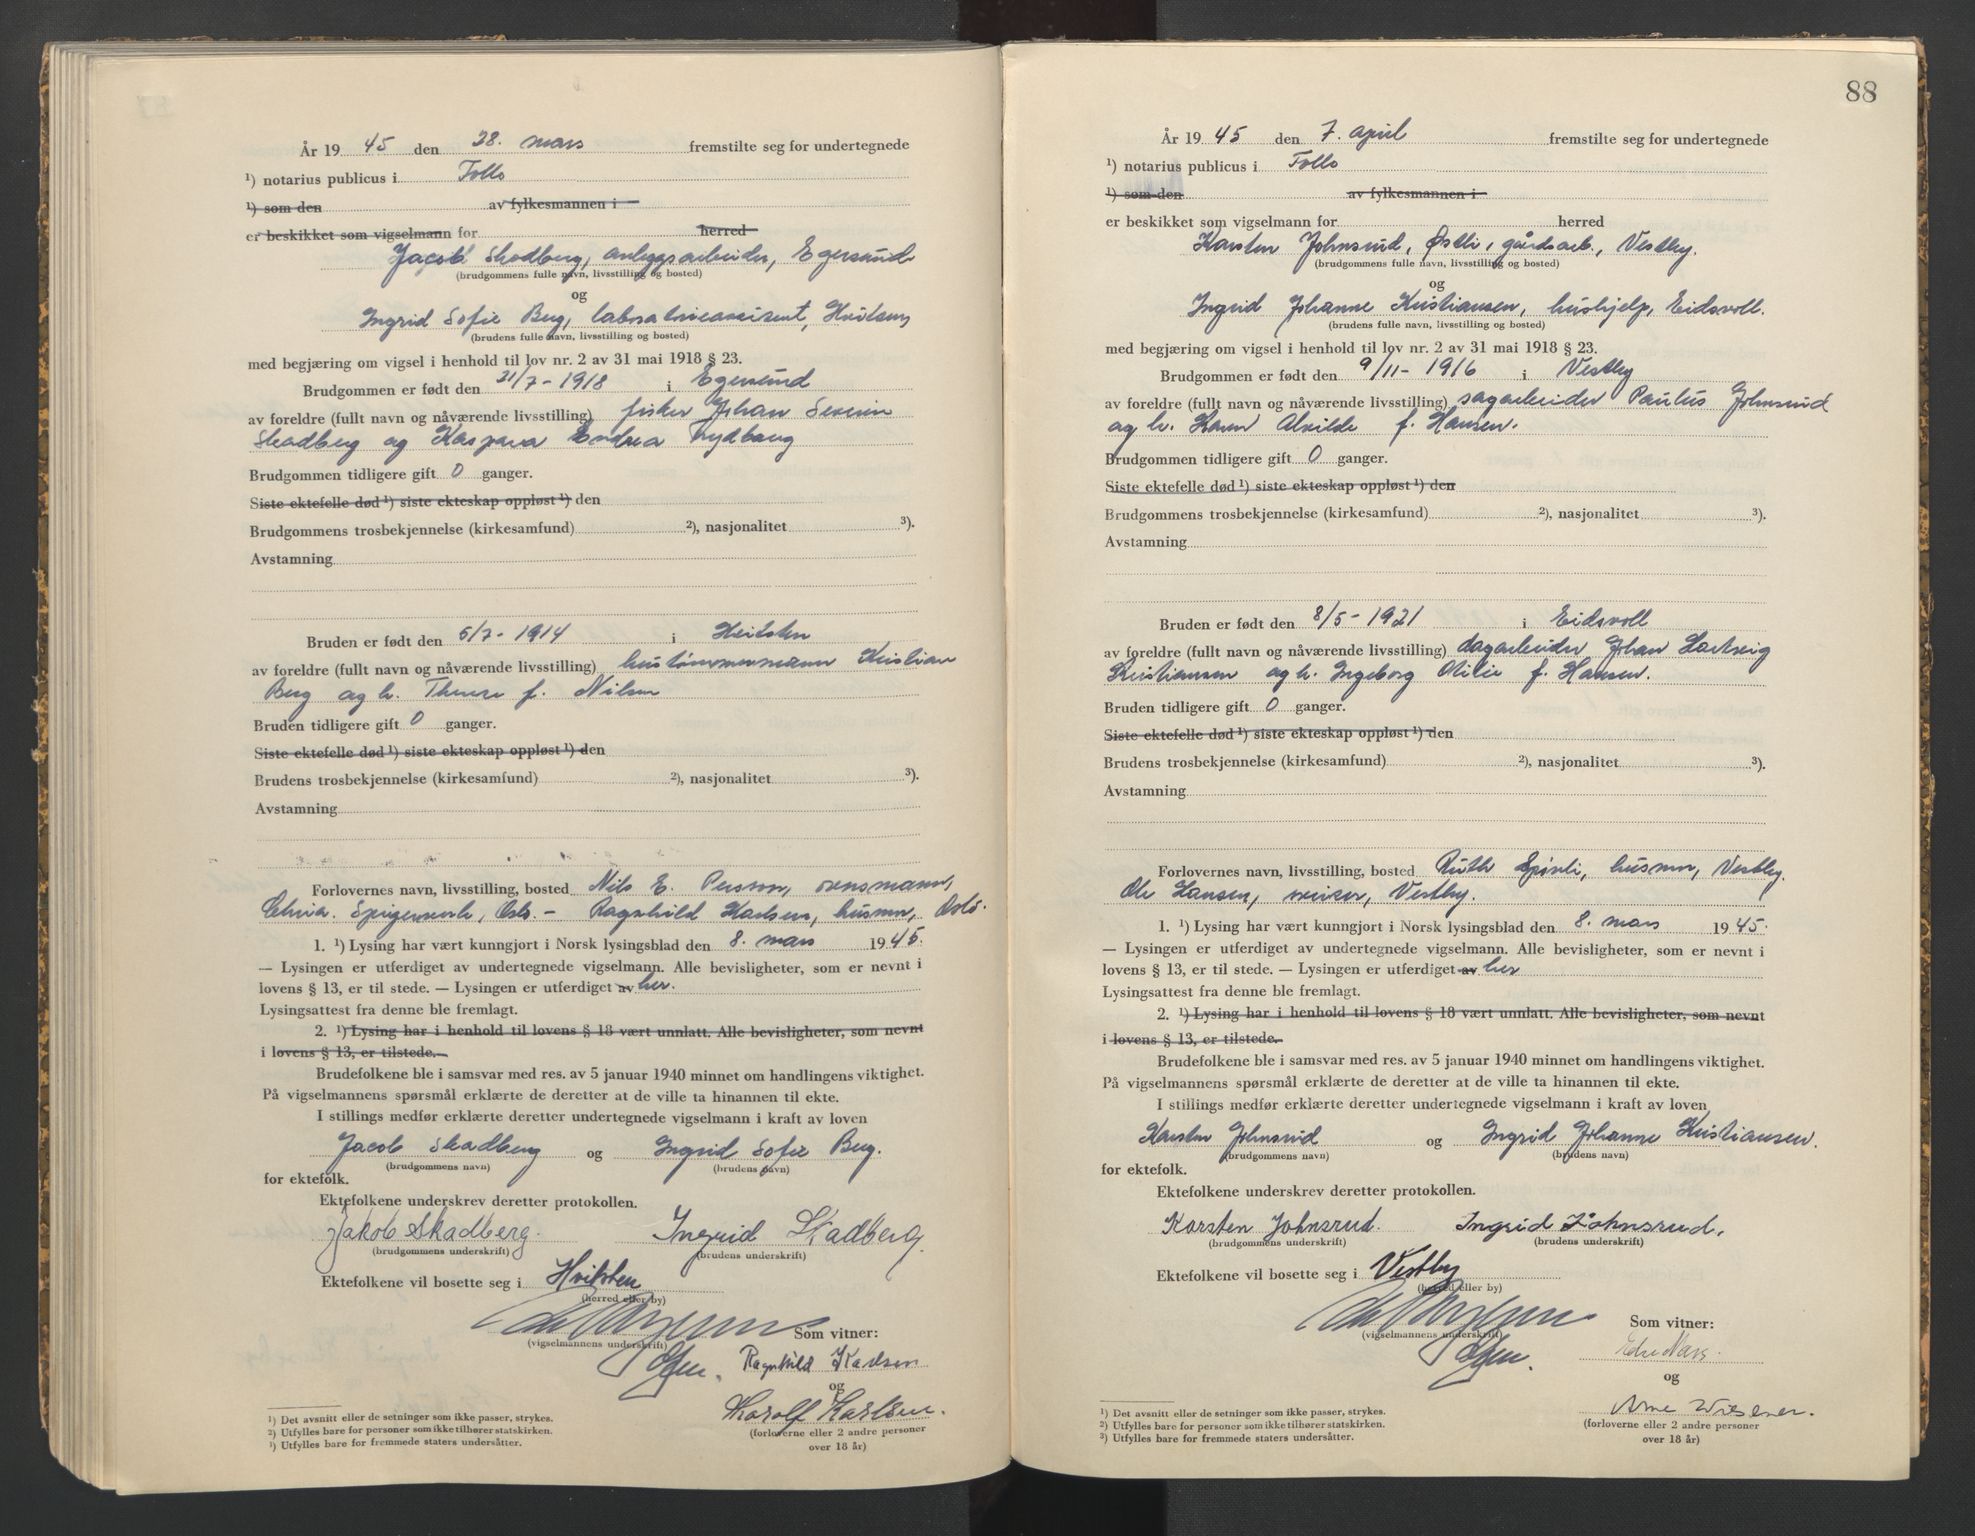 År 19 45 den 28. mars fremstilte seg for undertegnede
¹) notarius publicus i Follo
¹) som den av fylkesmannen i
er beskikket som vigselmann for herred
Jacob Skadberg, anleggsarbeider, Egersund
(brudgommens fulle navn, livsstilling og bosted)
og
Ingrid Sofie Berg, laboratorieassistent, Hvitsten
(brudens fulle navn, livsstilling og bosted)
med begjæring om vigsel i henhold til lov nr. 2 av 31 mai 1918 § 23.
Brudgommen er født den 21/7 - 1918 i Egersund
av foreldre (fullt navn og nåværende livsstilling) fisker Johan Severin
Skadberg og Kaspara Endrea
Brudgommen tidligere gift 0 ganger.
Siste ektefelle død ¹) siste ekteskap oppløst ¹) den
Brudgommens trosbekjennelse (kirkesamfund) ²), nasjonalitet ³).
Avstamning
Bruden er født den 5/7 - 1914 i Hvitsten
av foreldre (fullt navn og nåværende livsstilling) hustømmermann Kristian
Berg og h. Therese f. Nilsen
Bruden tidligere gift 0 ganger.
Siste ektefelle død ¹) siste ekteskap oppløst ¹) den
Brudens trosbekjennelse (kirkesamfund) ²), nasjonalitet ³).
Avstamning
Forlovernes navn, livsstilling, bosted Nils E. Persson, ovnsmann,
Chria. Spigerverk, Oslo. - Ragnhild Karlsen, husmor, Oslo.
1. ¹) Lysing har vært kunngjort i Norsk lysingsblad den 8. mars 1945.
— Lysingen er utferdiget av undertegnede vigselmann. Alle bevisligheter, som er nevnt i
lovens § 13, er til stede. — Lysingen er utferdiget av her.
Lysingsattest fra denne ble fremlagt.
2. ¹) Lysing har i henhold til lovens § 18 vært unnlatt. Alle bevisligheter, som nevnt
i lovens § 13, er tilstede.—
Brudefolkene ble i samsvar med res. av 5 januar 1940 minnet om handlingens viktighet.
På vigselmannens spørsmål erklærte de deretter at de ville ta hinannen til ekte.
I stillings medfør erklærte deretter undertegnede vigselmann i kraft av loven
Jacob Skadberg og Ingrid Sofie Berg.
(brudgommens navn) (brudens navn)
for ektefolk.
Ektefolkene underskrev deretter protokollen.
Jakob Skadberg. Ingrid Skadberg.
(brudgommens underskrift) (brudens underskrift)
Ektefolkene vil bosette seg i Hvitsten
(herred eller by)
Som vitner:
(vigselmannens underskrift)
Ragnhild Karlsen
og
Harolf Karlsen.
(forloverne eller 2 andre personer
over 18 år)
¹) Det avsnitt eller de setninger som ikke passer, strykes.
²) Utfylles bare for personer som ikke tilhører statskirken.
³) Utfylles bare for fremmede staters undersåtter.
88
År 19 45 den 7. april fremstilte seg for undertegnede
¹) notarius publicus i Follo
¹) som den av fylkesmannen i
er beskikket som vigselmann for herred
Karsten Johnsrud, Østli, gårdsarb., Vestby.
(brudgommens fulle navn, livsstilling og bosted)
og
Ingrid Johanne Kristiansen, hushjelp, Eidsvoll.
(brudens fulle navn, livsstilling og bosted)
med begjæring om vigsel i henhold til lov nr. 2 av 31 mai 1918 § 23.
Brudgommen er født den 9/11 - 1916 i Vestby
av foreldre (fullt navn og nåværende livsstilling) sagarbeider Paulus Johnsrud
og h. Karen Alvilde f. Hansen.
Brudgommen tidligere gift 0 ganger.
Siste ektefelle død ¹) siste ekteskap oppløst ¹) den
Brudgommens trosbekjennelse (kirkesamfund) ²), nasjonalitet ³).
Avstamning
Bruden er født den 8/5 - 1921 i Eidsvoll
av foreldre (fullt navn og nåværende livsstilling) dagarbeider Johan Hartvig
Kristiansen og h. Ingeborg Otilie f. Hansen.
Bruden tidligere gift 0 ganger.
Siste ektefelle død ¹) siste ekteskap oppløst ¹) den
Brudens trosbekjennelse (kirkesamfund) ²), nasjonalitet ³).
Avstamning
Forlovernes navn, livsstilling, bosted Ruth husmor, Vestby.
Ole Hansen, sveiser, Vestby.
1. ¹) Lysing har vært kunngjort i Norsk lysingsblad den 8. mars 1945.
— Lysingen er utferdiget av undertegnede vigselmann. Alle bevisligheter, som er nevnt i
lovens § 13, er til stede. — Lysingen er utferdiget av her
Lysingsattest fra denne ble fremlagt.
2. ¹) Lysing har i henhold til lovens § 18 vært unnlatt. Alle bevisligheter, som nevnt
i lovens § 13, er tilstede.—
Brudefolkene ble i samsvar med res. av 5 januar 1940 minnet om handlingens viktighet.
På vigselmannens spørsmål erklærte de deretter at de ville ta hinannen til ekte.
I stillings medfør erklærte deretter undertegnede vigselmann i kraft av loven
Karsten Johnsrud og Ingrid Johanne Kristiansen.
(brudgommens navn) (brudens navn)
for ektefolk.
Ektefolkene underskrev deretter protokollen.
Karsten Johnsrud. Ingrid Johnsrud.
(brudgommens underskrift) (brudens underskrift)
Ektefolkene vil bosette seg i Vestby
(herred eller by)
Som vitner:
(vigselmannens underskrift)
og
Arne
(forloverne eller 2 andre personer
over 18 år)
¹) Det avsnitt eller de setninger som ikke passer, strykes.
²) Utfylles bare for personer som ikke tilhører statskirken.
³) Utfylles bare for fremmede staters undersåtter.